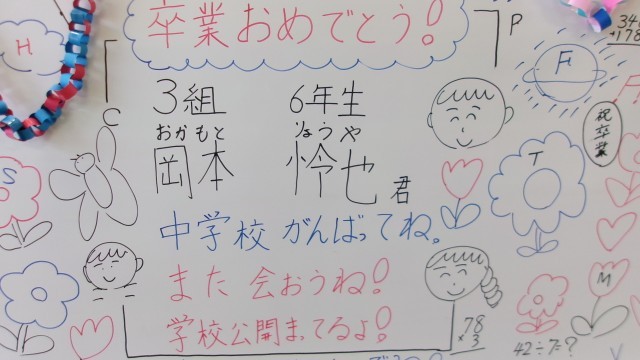 卒業おめでとう!
H
P
346
+178
F
3組 6年生
おかもと りょうや
岡本 怜也 君
C
祝卒業
S
T
中学校 がんばってね。
また 会おうね!
M
学校公開まってるよ!
78
×3
42÷7=?